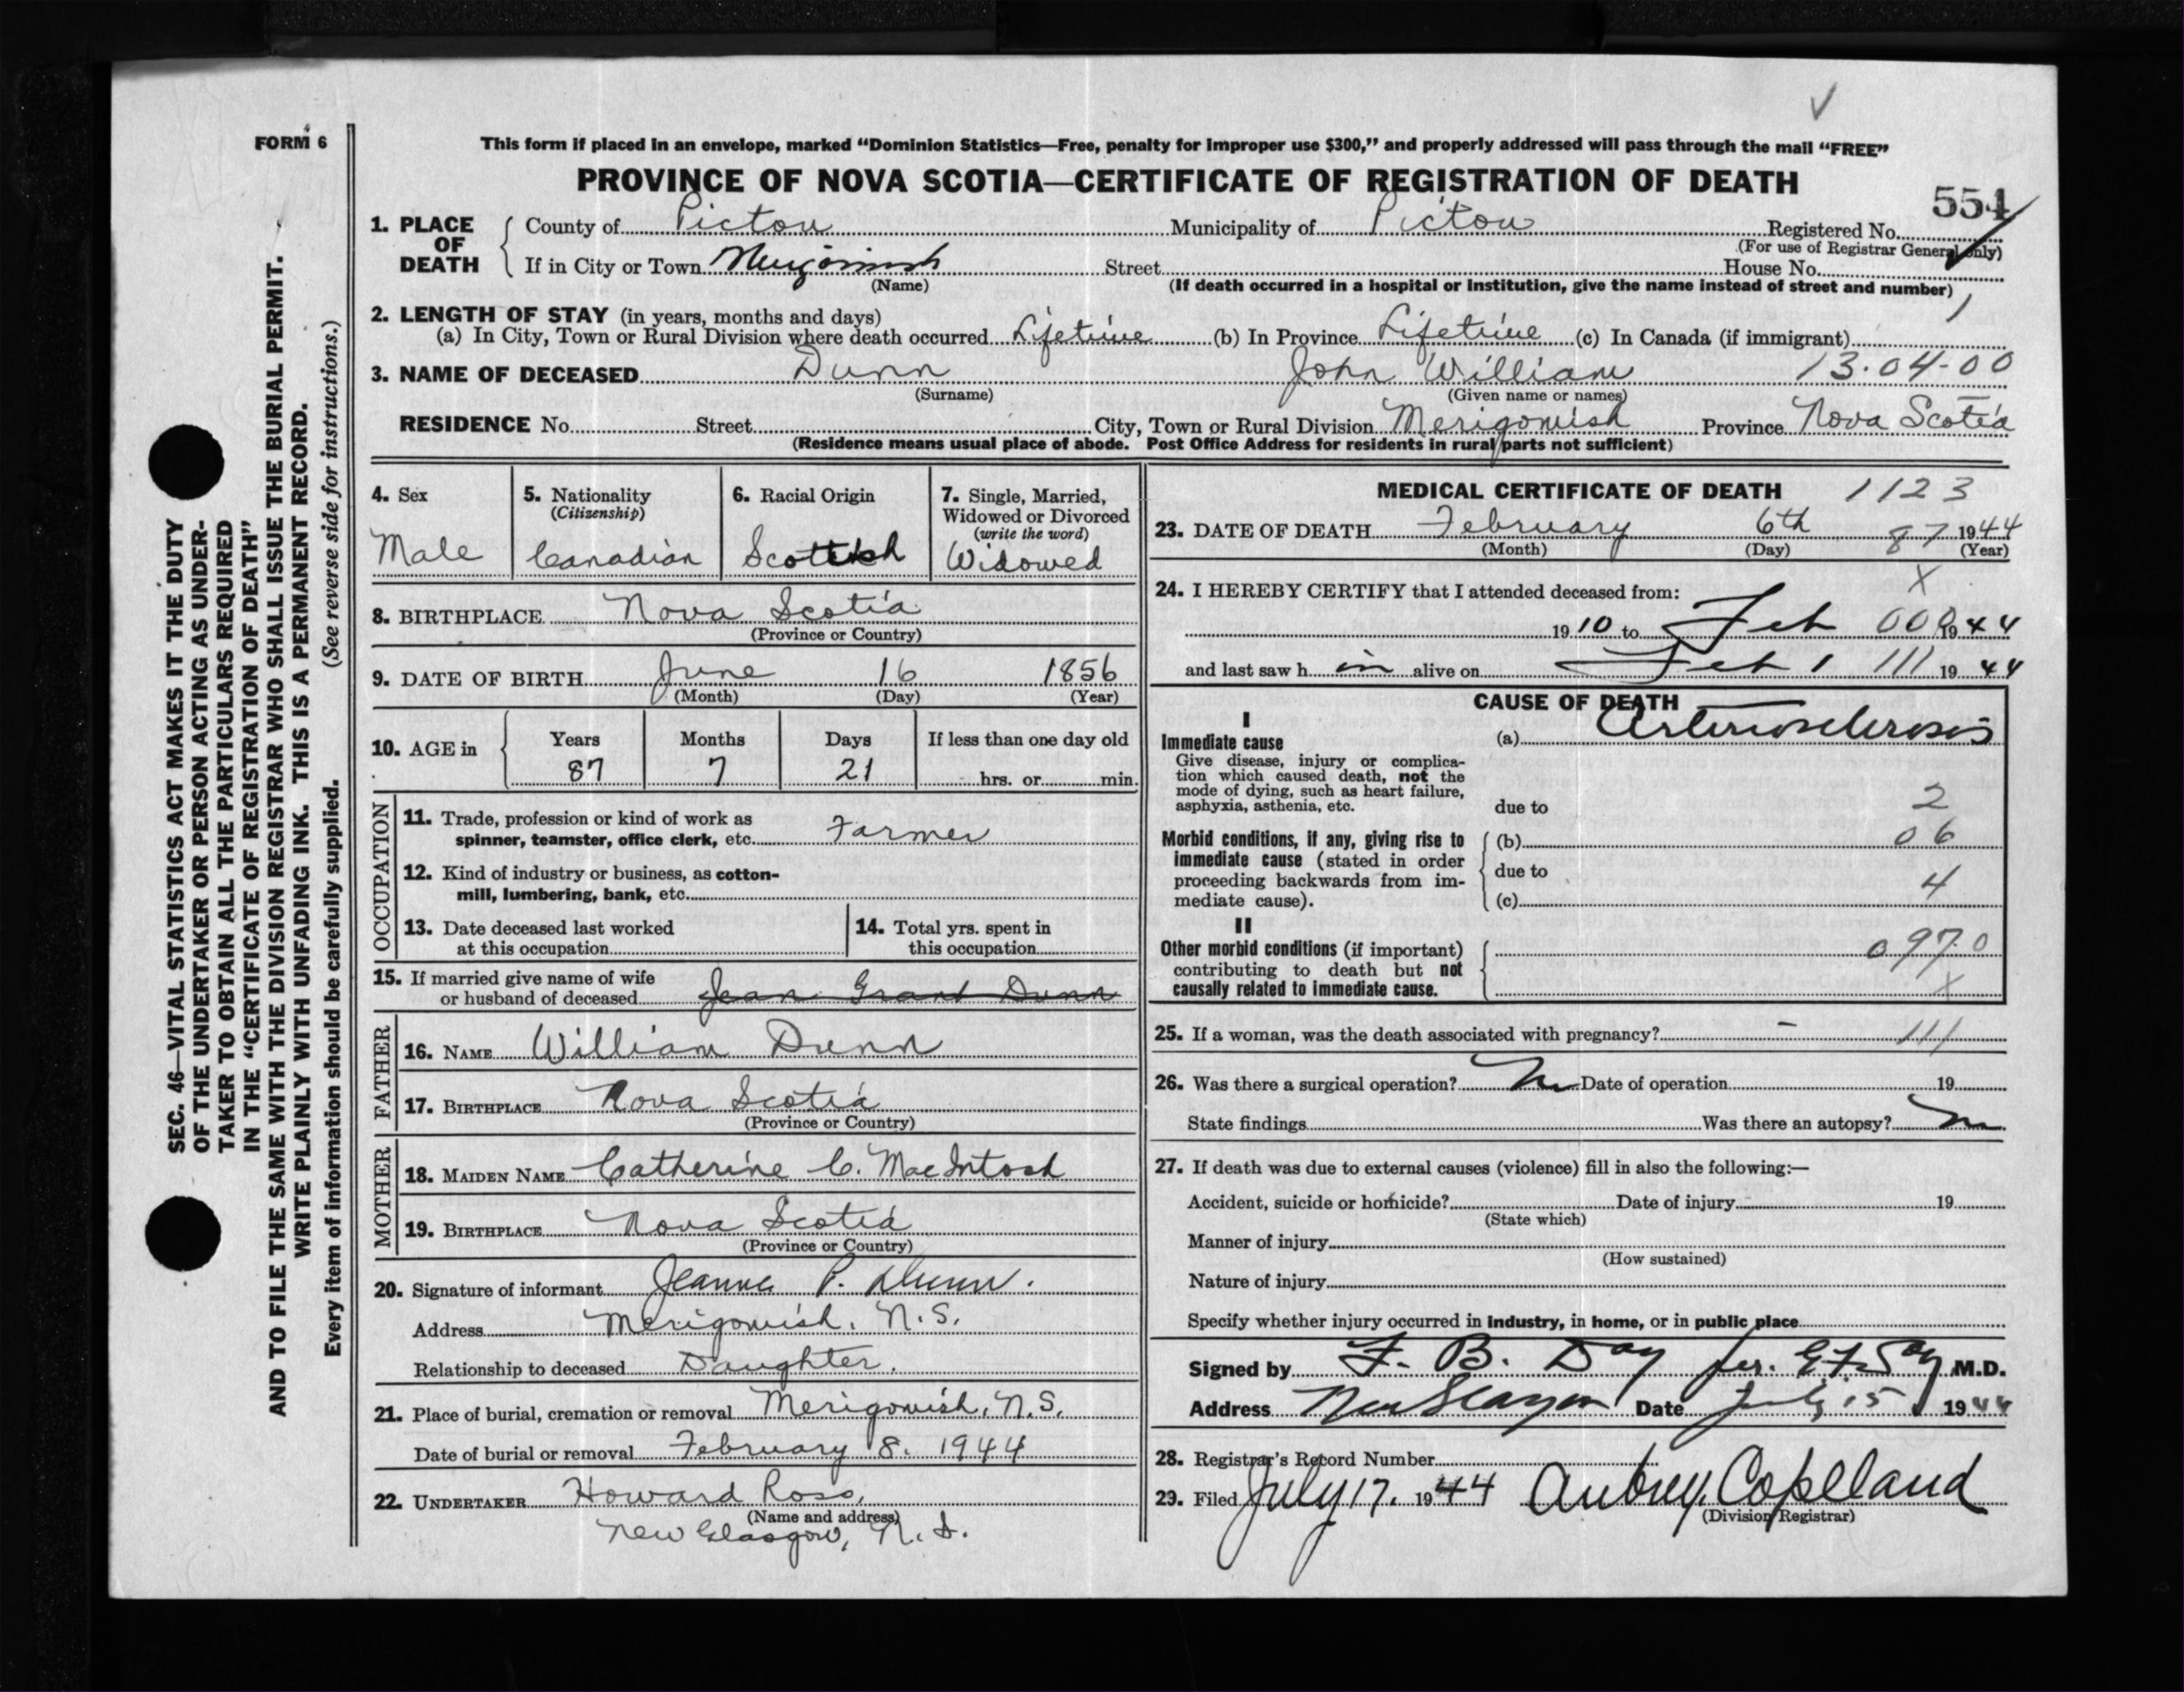 FORM 6
This form if placed in an envelope, marked “Dominion Statistics—Free, penalty for improper use $300,” and properly addressed will pass through the mail “FREE”
PROVINCE OF NOVA SCOTIA—CERTIFICATE OF REGISTRATION OF DEATH
554
1. PLACE OF DEATH
County of Pictou Municipality of Pictou Registered No.
(For use of Registrar General only)
If in City or Town Merigomish Street House No.
(Name) (If death occurred in a hospital or institution, give the name instead of street and number)
2. LENGTH OF STAY (in years, months and days) 1
(a) In City, Town or Rural Division where death occurred Lifetime (b) In Province Lifetime (c) In Canada (if immigrant)
3. NAME OF DECEASED Dunn John William 13-04-00
(Surname) (Given name or names)
RESIDENCE No. Street City, Town or Rural Division Merigomish Province Nova Scotia
(Residence means usual place of abode. Post Office Address for residents in rural parts not sufficient)
4. Sex
Male
5. Nationality
(Citizenship)
Canadian
6. Racial Origin
Scottish
7. Single, Married,
Widowed or Divorced
(write the word)
Widowed
8. BIRTHPLACE Nova Scotia
(Province or Country)
9. DATE OF BIRTH June 16 1856
(Month) (Day) (Year)
10. AGE in Years Months Days If less than one day old
87 7 21 hrs. or min.
OCCUPATION
11. Trade, profession or kind of work as
spinner, teamster, office clerk, etc. Farmer
12. Kind of industry or business, as cotton-
mill, lumbering, bank, etc.
13. Date deceased last worked
at this occupation
14. Total yrs. spent in
this occupation
15. If married give name of wife
or husband of deceased Jean Grant Dunn
FATHER
16. NAME William Dunn
17. BIRTHPLACE Nova Scotia
(Province or Country)
MOTHER
18. MAIDEN NAME Catherine C. MacIntosh
19. BIRTHPLACE Nova Scotia
(Province or Country)
20. Signature of informant P. Dunn.
Address Merigomish, N.S.
Relationship to deceased Daughter.
21. Place of burial, cremation or removal Merigomish, N.S.
Date of burial or removal February 8. 1944
22. UNDERTAKER Howard Ross,
(Name and address)
New Glasgow, N. S.
MEDICAL CERTIFICATE OF DEATH 1123
23. DATE OF DEATH February 6th 87 1944
(Month) (Day) (Year)
X
24. I HEREBY CERTIFY that I attended deceased from:
1910 to Feb 1944
and last saw h im alive on Feb 1 111 1944
CAUSE OF DEATH
I
Immediate cause (a) Arteriosclerosis
Give disease, injury or complica-
tion which caused death, not the
mode of dying, such as heart failure,
asphyxia, asthenia, etc. due to 2
Morbid conditions, if any, giving rise to (b) 06
immediate cause (stated in order
proceeding backwards from im- due to 4
mediate cause). (c)
II
Other morbid conditions (if important) 097.0
contributing to death but not
causally related to immediate cause. X
25. If a woman, was the death associated with pregnancy? – 111
26. Was there a surgical operation? No Date of operation 19
State findings Was there an autopsy? No
27. If death was due to external causes (violence) fill in also the following:—
Accident, suicide or homicide? Date of injury 19
(State which)
Manner of injury
(How sustained)
Nature of injury
Specify whether injury occurred in industry, in home, or in public place
Signed by F. B. Day per. G F Day M.D.
Address New Glasgow Date July 15 1944
28. Registrar's Record Number
29. Filed July 17. 1944 Aubrey Copeland
(Division Registrar)
SEC. 46—VITAL STATISTICS ACT MAKES IT THE DUTY
OF THE UNDERTAKER OR PERSON ACTING AS UNDER-
TAKER TO OBTAIN ALL THE PARTICULARS REQUIRED
IN THE “CERTIFICATE OF REGISTRATION OF DEATH”
AND TO FILE THE SAME WITH THE DIVISION REGISTRAR WHO SHALL ISSUE THE BURIAL PERMIT.
WRITE PLAINLY WITH UNFADING INK. THIS IS A PERMANENT RECORD.
Every item of information should be carefully supplied. (See reverse side for instructions.)